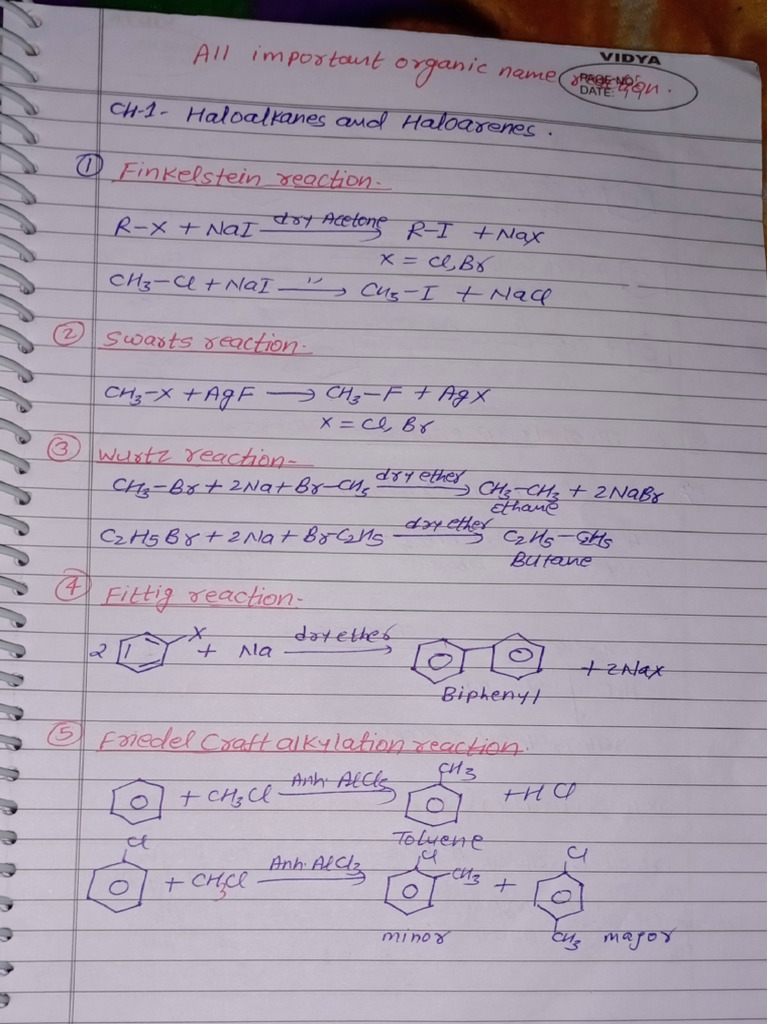 VIDYA
PAGE NO:
DATE:
All important organic name reaction.
CH-1- Haloalkanes and Haloarenes.
① Finkelstein reaction-
R-X + NaI dry Acetone → R-I + NaX
X = Cl, Br
CH3-Cl + NaI —〃→ CH3-I + NaCl
② Swarts reaction-
CH3-X + AgF → CH3-F + AgX
X = Cl, Br
③ Wurtz reaction-
CH3-Br + 2Na + Br-CH3 dry ether → CH3-CH3 + 2NaBr
Ethane
C2H5Br + 2Na + BrC2H5 dry ether → C2H5-C2H5
Butane
④ Fittig reaction-
2 X + Na dry ether → + 2NaX
Biphenyl
⑤ Friedel Craft alkylation reaction.
CH3
+ CH3Cl Anh. AlCl3 → + HCl
Toluene
Cl Cl Cl
+ CH3Cl Anh. AlCl3 → CH3 +
minor CH3 major